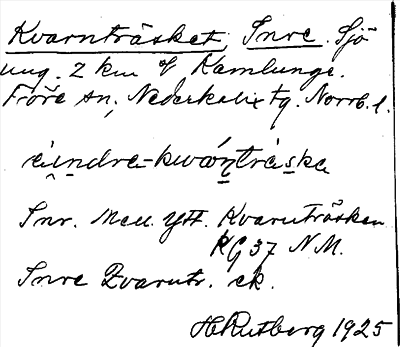 Kvarnträsket, Inre. Sjö
ung. 2 km of Kamlunge.
Töre sn, Nederkalix tg. Norrb. l.
Inr. Mell. Ytt. Kvarnträsken
RG 37 N.M.
Inre Kvarntr. ek.
H Rutberg 1925